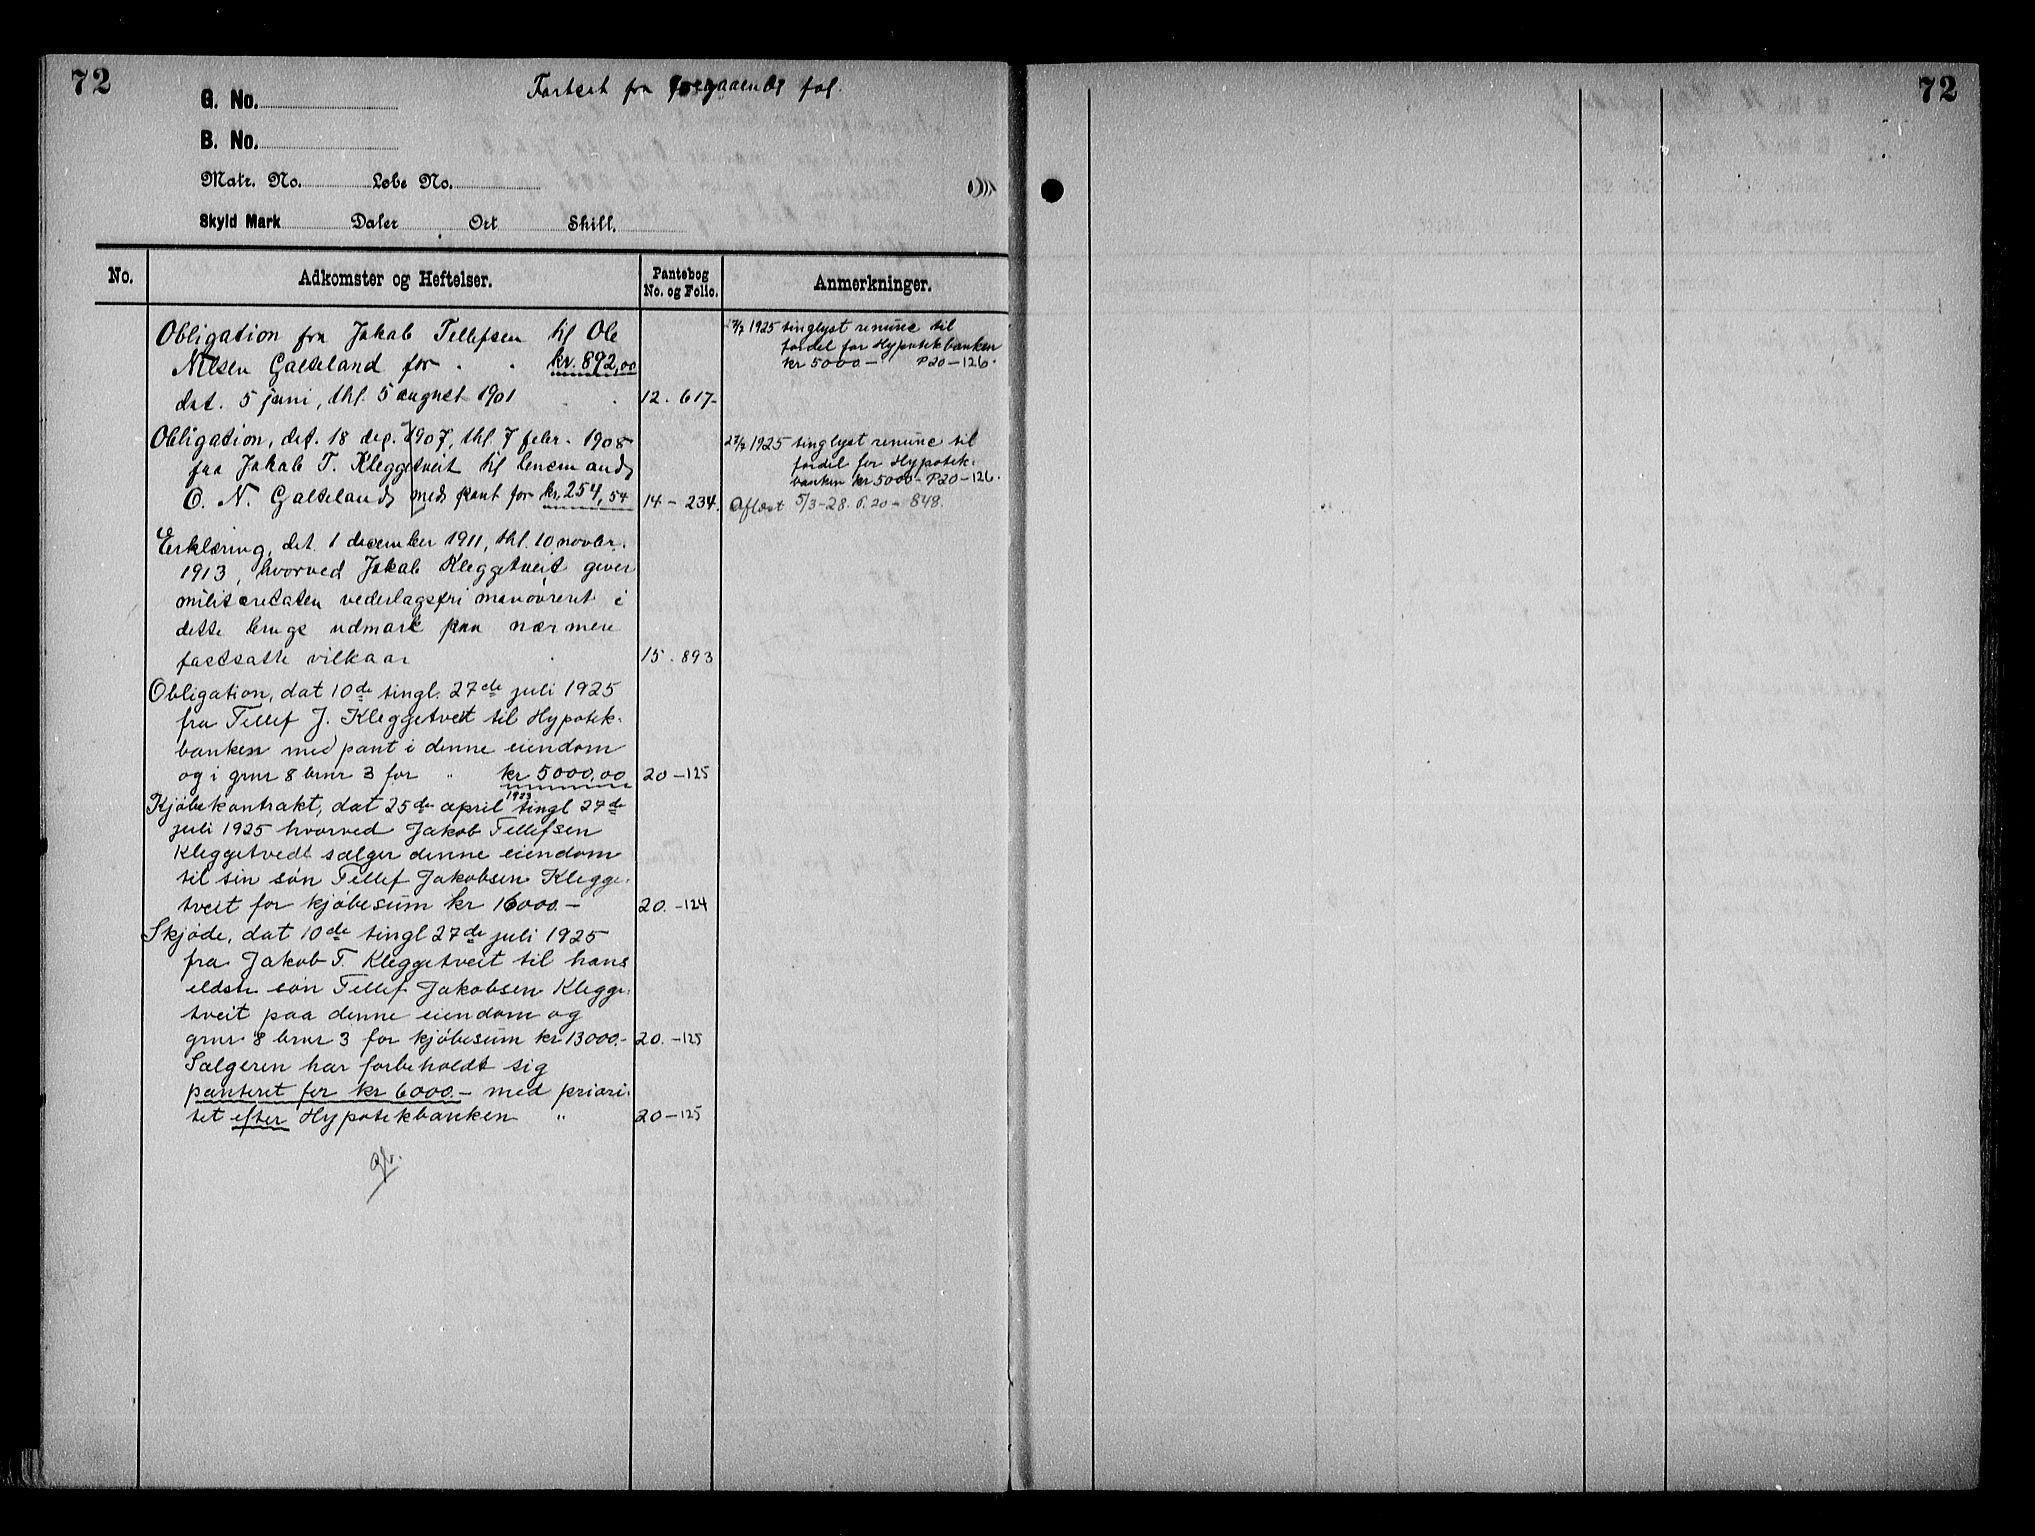 72
Fortsat fra foregaaende fol.
G. No.
B. No.
Matr. No. Løbe No.
Skyld Mark Daler Ort Skill.
No. Adkomster og Heftelser. Pantebog No. og Folio. Anmerkninger.
Obligation fra Jakob Tellefsen til Ole
Nilsen Galteland for . . kr. 892,00
dat. 5 juni, thl. 5 august 1901 12 . 617
27/7 1925 tinglyst renunc til
fordel for Hypotekbanken
kr 5000 – P20 – 126.
Obligation, dat. 18 dep. 1907, thl. 7 febr. 1908
fra Jakob T. Kleggetveit til lensmand
O. N. Galteland med pant for kr. 254,54 14 – 234.
27/7 1925 tinglyst renunc til
fordel for Hypotek-
banken kr 5000 – P20 – 126.
Aflæst 5/3-28. P. 20 – 848.
Erklæring, dat. 1 december 1911, thl. 10 novbr.
1913, hvorved Jakob Kleggetveit giver
militæretaten vederlagsfri manøvreret i
dette brugs udmark paa nærmere
fastsatte vilkaar 15 . 893
Obligation, dat 10de tingl. 27de juli 1925
fra Tellef J. Kleggetveit til Hypotek-
banken med pant i denne eiendom
og i grnr 8 brnr 3 for " kr 5000,00 20 – 125
Kjøbekontrakt, dat 25de april 1923 tingl 27de
juli 1925 hvorved Jakob Tellefsen
Kleggetvedt sælger denne eiendom
til sin søn Tellef Jakobsen Klegge-
tveit for kjøbesum kr 16000. – 20. – 124
Skjøde, dat 10de tingl 27de juli 1925
fra Jakob T. Kleggetveit til hans
eldste søn Tellef Jakobsen Klegge-
tveit paa denne eiendom og
grnr 8 brnr 3 for kjøbesum kr 13000.– 20. – 125
Sælgeren har forbeholdt sig
panteret for kr 6000. – med priori-
tet efter Hypotekbanken " 20 – 125
72